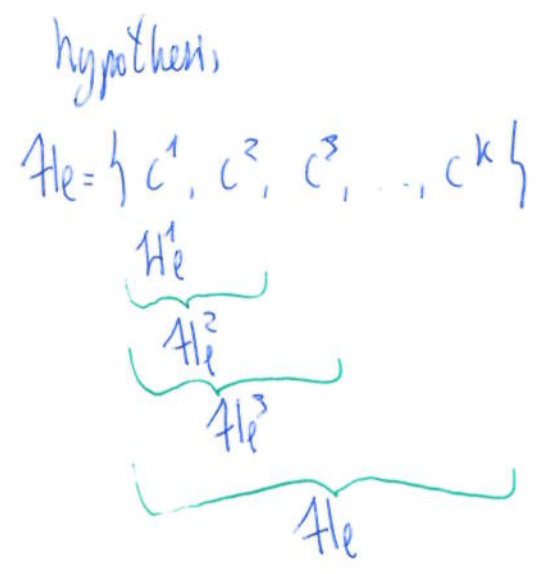 hypothesis
He = { C¹, C², C³, ..., Cᵏ }
He¹
He²
He³
He